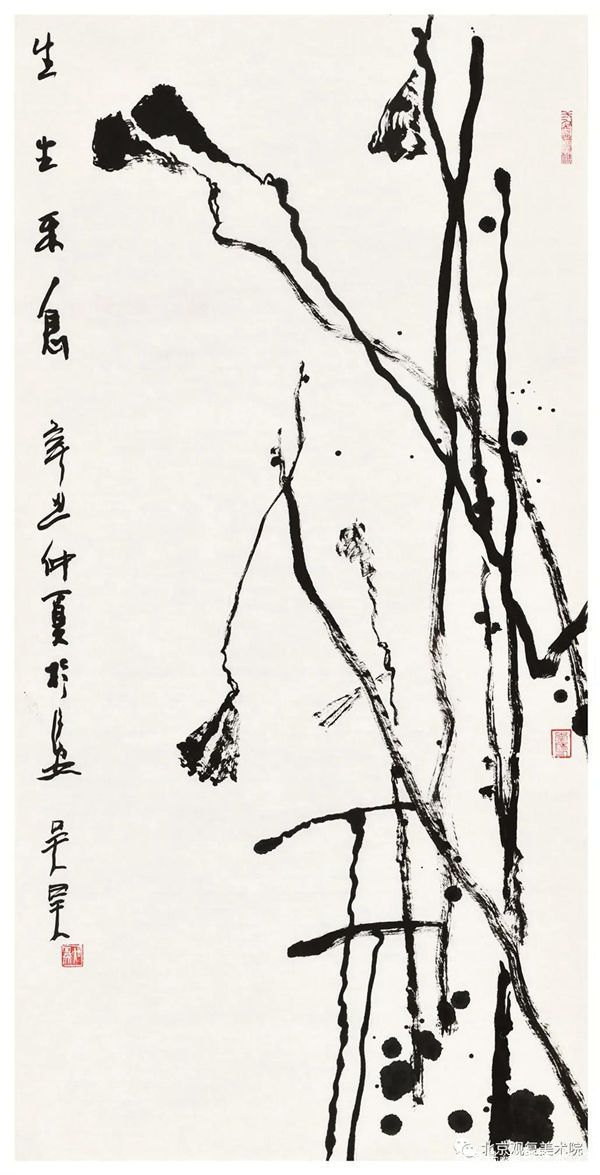 生生不息 辛丑仲夏於长安 吴昊
北京观复美术院